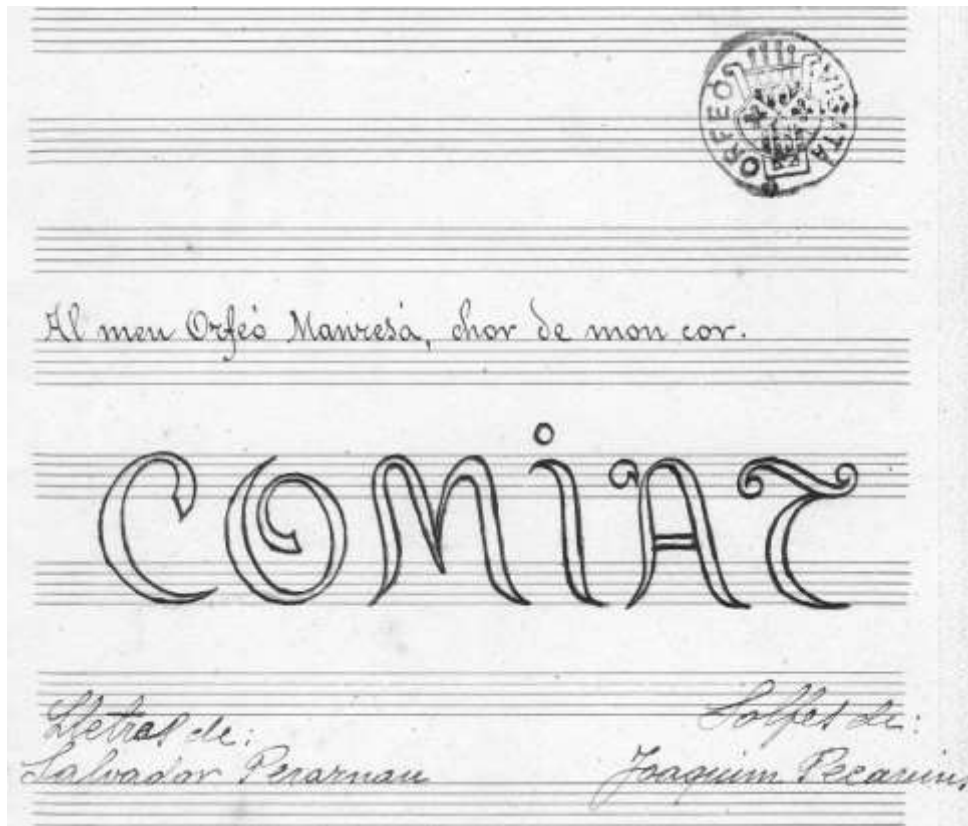 ORFEÓ VIGATÀ
Al meu Orfeó Manresà, chor de mon cor.
COMiAT
Lletras de:
Salvador Perarnau
Solfes de:
Joaquim Pecanins